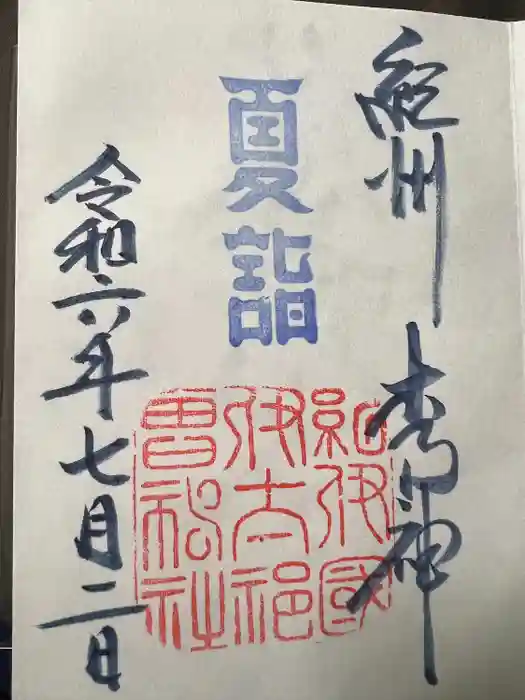 紀州 木の神
夏詣
紀伊國
伊太祁
曽神社
令和六年七月二日